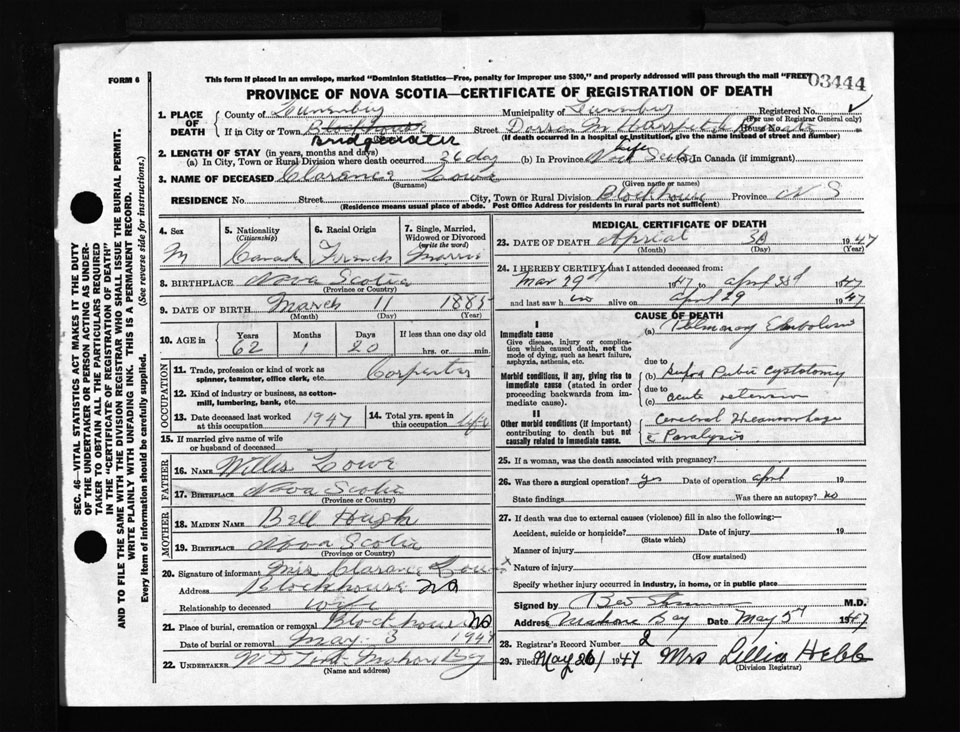 FORM 6
This form if placed in an envelope, marked "Dominion Statistics—Free, penalty for improper use $300," and properly addressed will pass through the mail "FREE"
03444
PROVINCE OF NOVA SCOTIA—CERTIFICATE OF REGISTRATION OF DEATH
SEC. 46—VITAL STATISTICS ACT MAKES IT THE DUTY
OF THE UNDERTAKER OR PERSON ACTING AS UNDER-
TAKER TO OBTAIN ALL THE PARTICULARS REQUIRED
IN THE "CERTIFICATE OF REGISTRATION OF DEATH"
AND TO FILE THE SAME WITH THE DIVISION REGISTRAR WHO SHALL ISSUE THE BURIAL PERMIT.
WRITE PLAINLY WITH UNFADING INK. THIS IS A PERMANENT RECORD.
Every item of information should be carefully supplied. (See reverse side for instructions.)
1. PLACE OF DEATH
County of Lunenburg Municipality of Lunenburg Registered No.
(For use of Registrar General only)
If in City or Town Blockhouse Street House No.
Bridgewater (If death occurred in a hospital or institution, give the name instead of street and number)
2. LENGTH OF STAY (in years, months and days)
(a) In City, Town or Rural Division where death occurred 36 day (b) In Province Nova Scotia life (c) In Canada (if immigrant)
3. NAME OF DECEASED Clarance Lowe
(Surname) (Given name or names)
RESIDENCE No. Street City, Town or Rural Division Blockhouse Province N S
(Residence means usual place of abode. Post Office Address for residents in rural parts not sufficient)
4. Sex M
5. Nationality (Citizenship) Canada
6. Racial Origin French
7. Single, Married, Widowed or Divorced (write the word) Marrie
8. BIRTHPLACE Nova Scotia
(Province or Country)
9. DATE OF BIRTH March 11 1885
(Month) (Day) (Year)
10. AGE in Years 62 Months 1 Days 20 If less than one day hrs. or min.
OCCUPATION
11. Trade, profession or kind of work as spinner, teamster, office clerk, etc. Carpenter
12. Kind of industry or business, as cotton-mill, lumbering, bank, etc.
13. Date deceased last worked at this occupation 1947
14. Total yrs. spent in this occupation life
15. If married give name of wife or husband of deceased
FATHER
16. NAME Willis Lowe
17. BIRTHPLACE Nova Scotia
(Province or Country)
MOTHER
18. MAIDEN NAME Bell Hough
19. BIRTHPLACE Nova Scotia
(Province or Country)
20. Signature of informant Mrs Clarance Lowe
Address Blockhouse NS
Relationship to deceased wife
21. Place of burial, cremation or removal Blockhouse NS
Date of burial or removal May 3 1947
22. UNDERTAKER Mahone Bay
(Name and address)
MEDICAL CERTIFICATE OF DEATH
23. DATE OF DEATH Aprial 30 1947
(Month) (Day) (Year)
24. I HEREBY CERTIFY that I attended deceased from:
Mar 29d 1947 to april 1947
and last saw h im alive on April 29 1947
CAUSE OF DEATH
I
Immediate cause
Give disease, injury or complication which caused death, not the mode of dying, such as heart failure, asphyxia, asthenia, etc.
(a) Pulmonary Embolism
due to
Morbid conditions, if any, giving rise to immediate cause (stated in order proceeding backwards from immediate cause).
(b) Supra Pubic Cystotomy
due to
(c) acute retension
II
Other morbid conditions (if important) contributing to death but not causally related to immediate cause.
Cerebral Heamorrhage
& Paralysis
25. If a woman, was the death associated with pregnancy?
26. Was there a surgical operation? yes Date of operation April 19
State findings Was there an autopsy? no
27. If death was due to external causes (violence) fill in also the following:—
Accident, suicide or homicide? Date of injury 19
(State which)
Manner of injury
(How sustained)
Nature of injury
Specify whether injury occurred in industry, in home, or in public place
Signed by M.D.
Address Mahone Bay Date May 5 1947
28. Registrar's Record Number 2
29. Filed May 26 1947 Mrs Lillia Hebb
(Division Registrar)